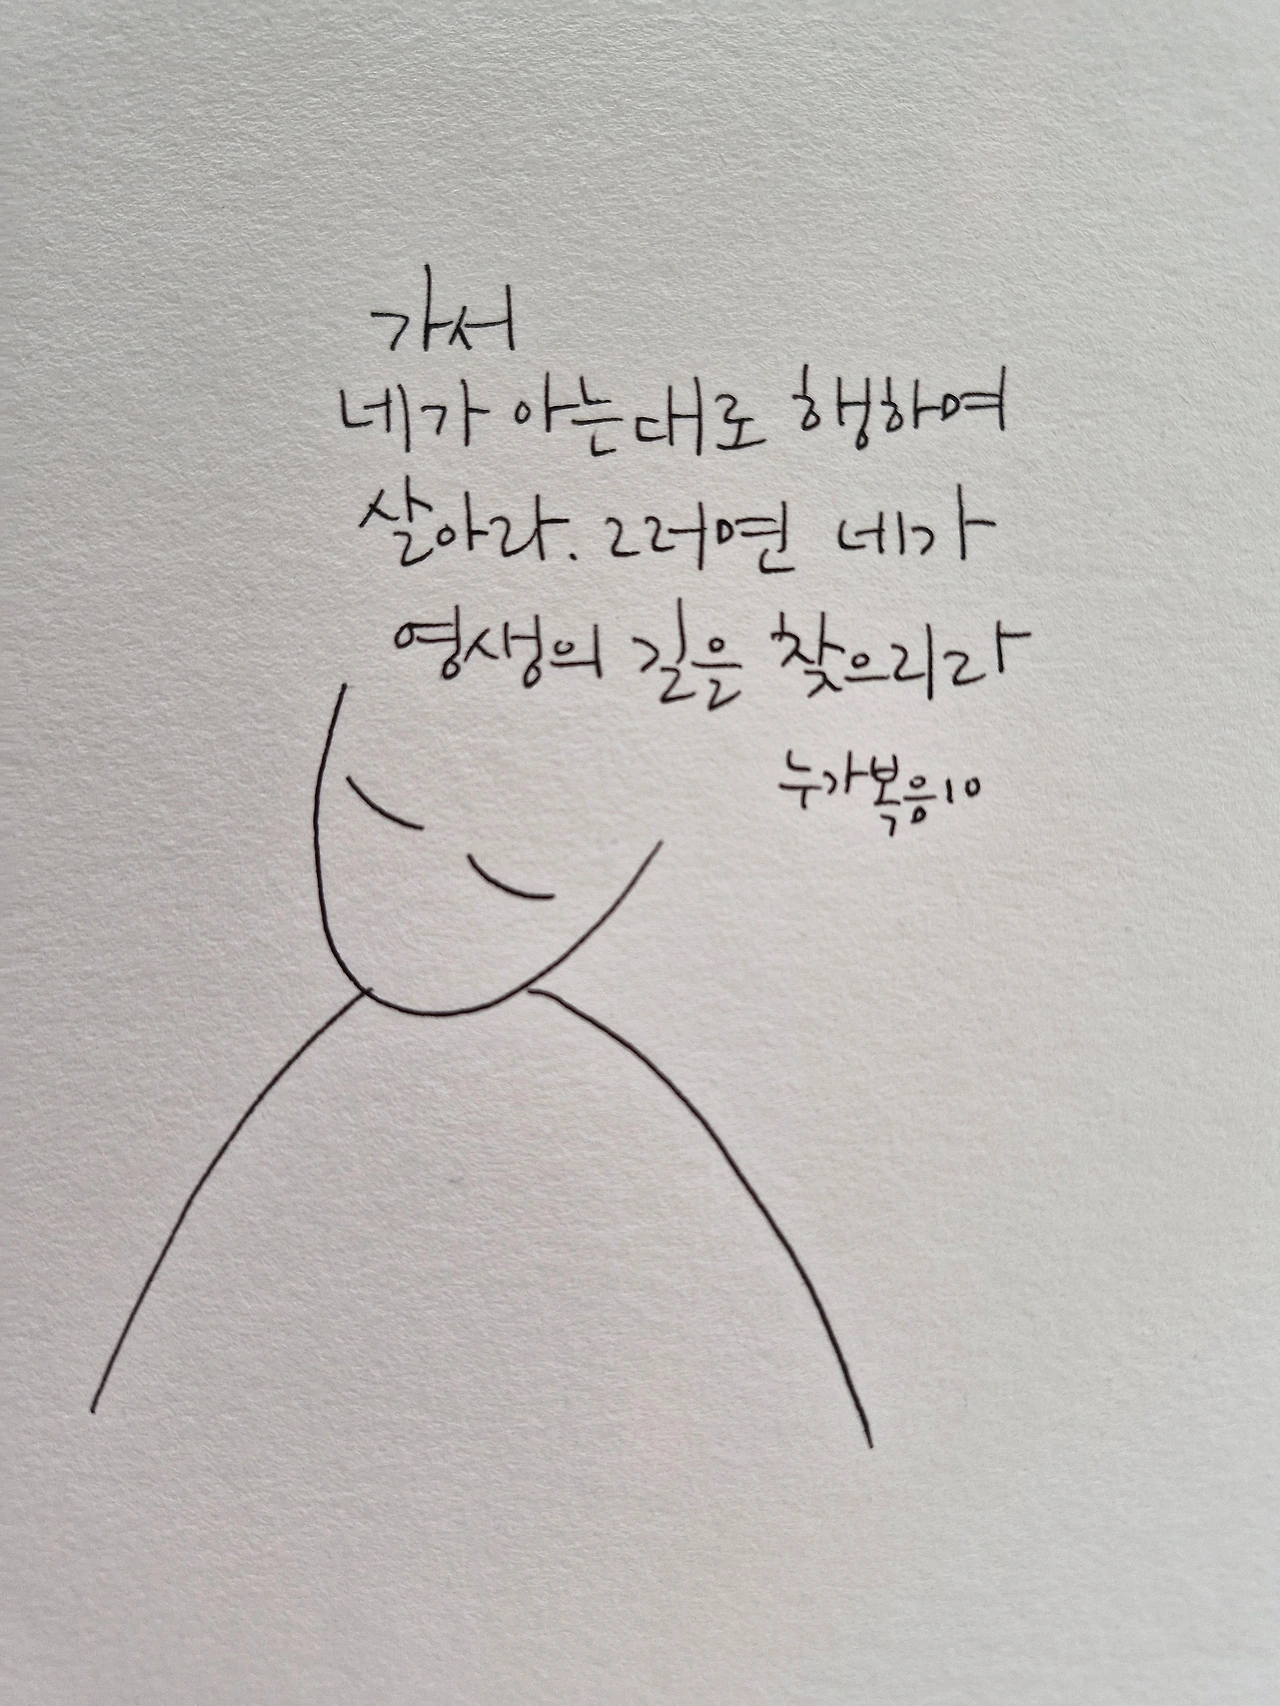 가서
네가 아는대로 행하여
살아라. 그러면 네가
영생의 길을 찾으리라
누가복음10